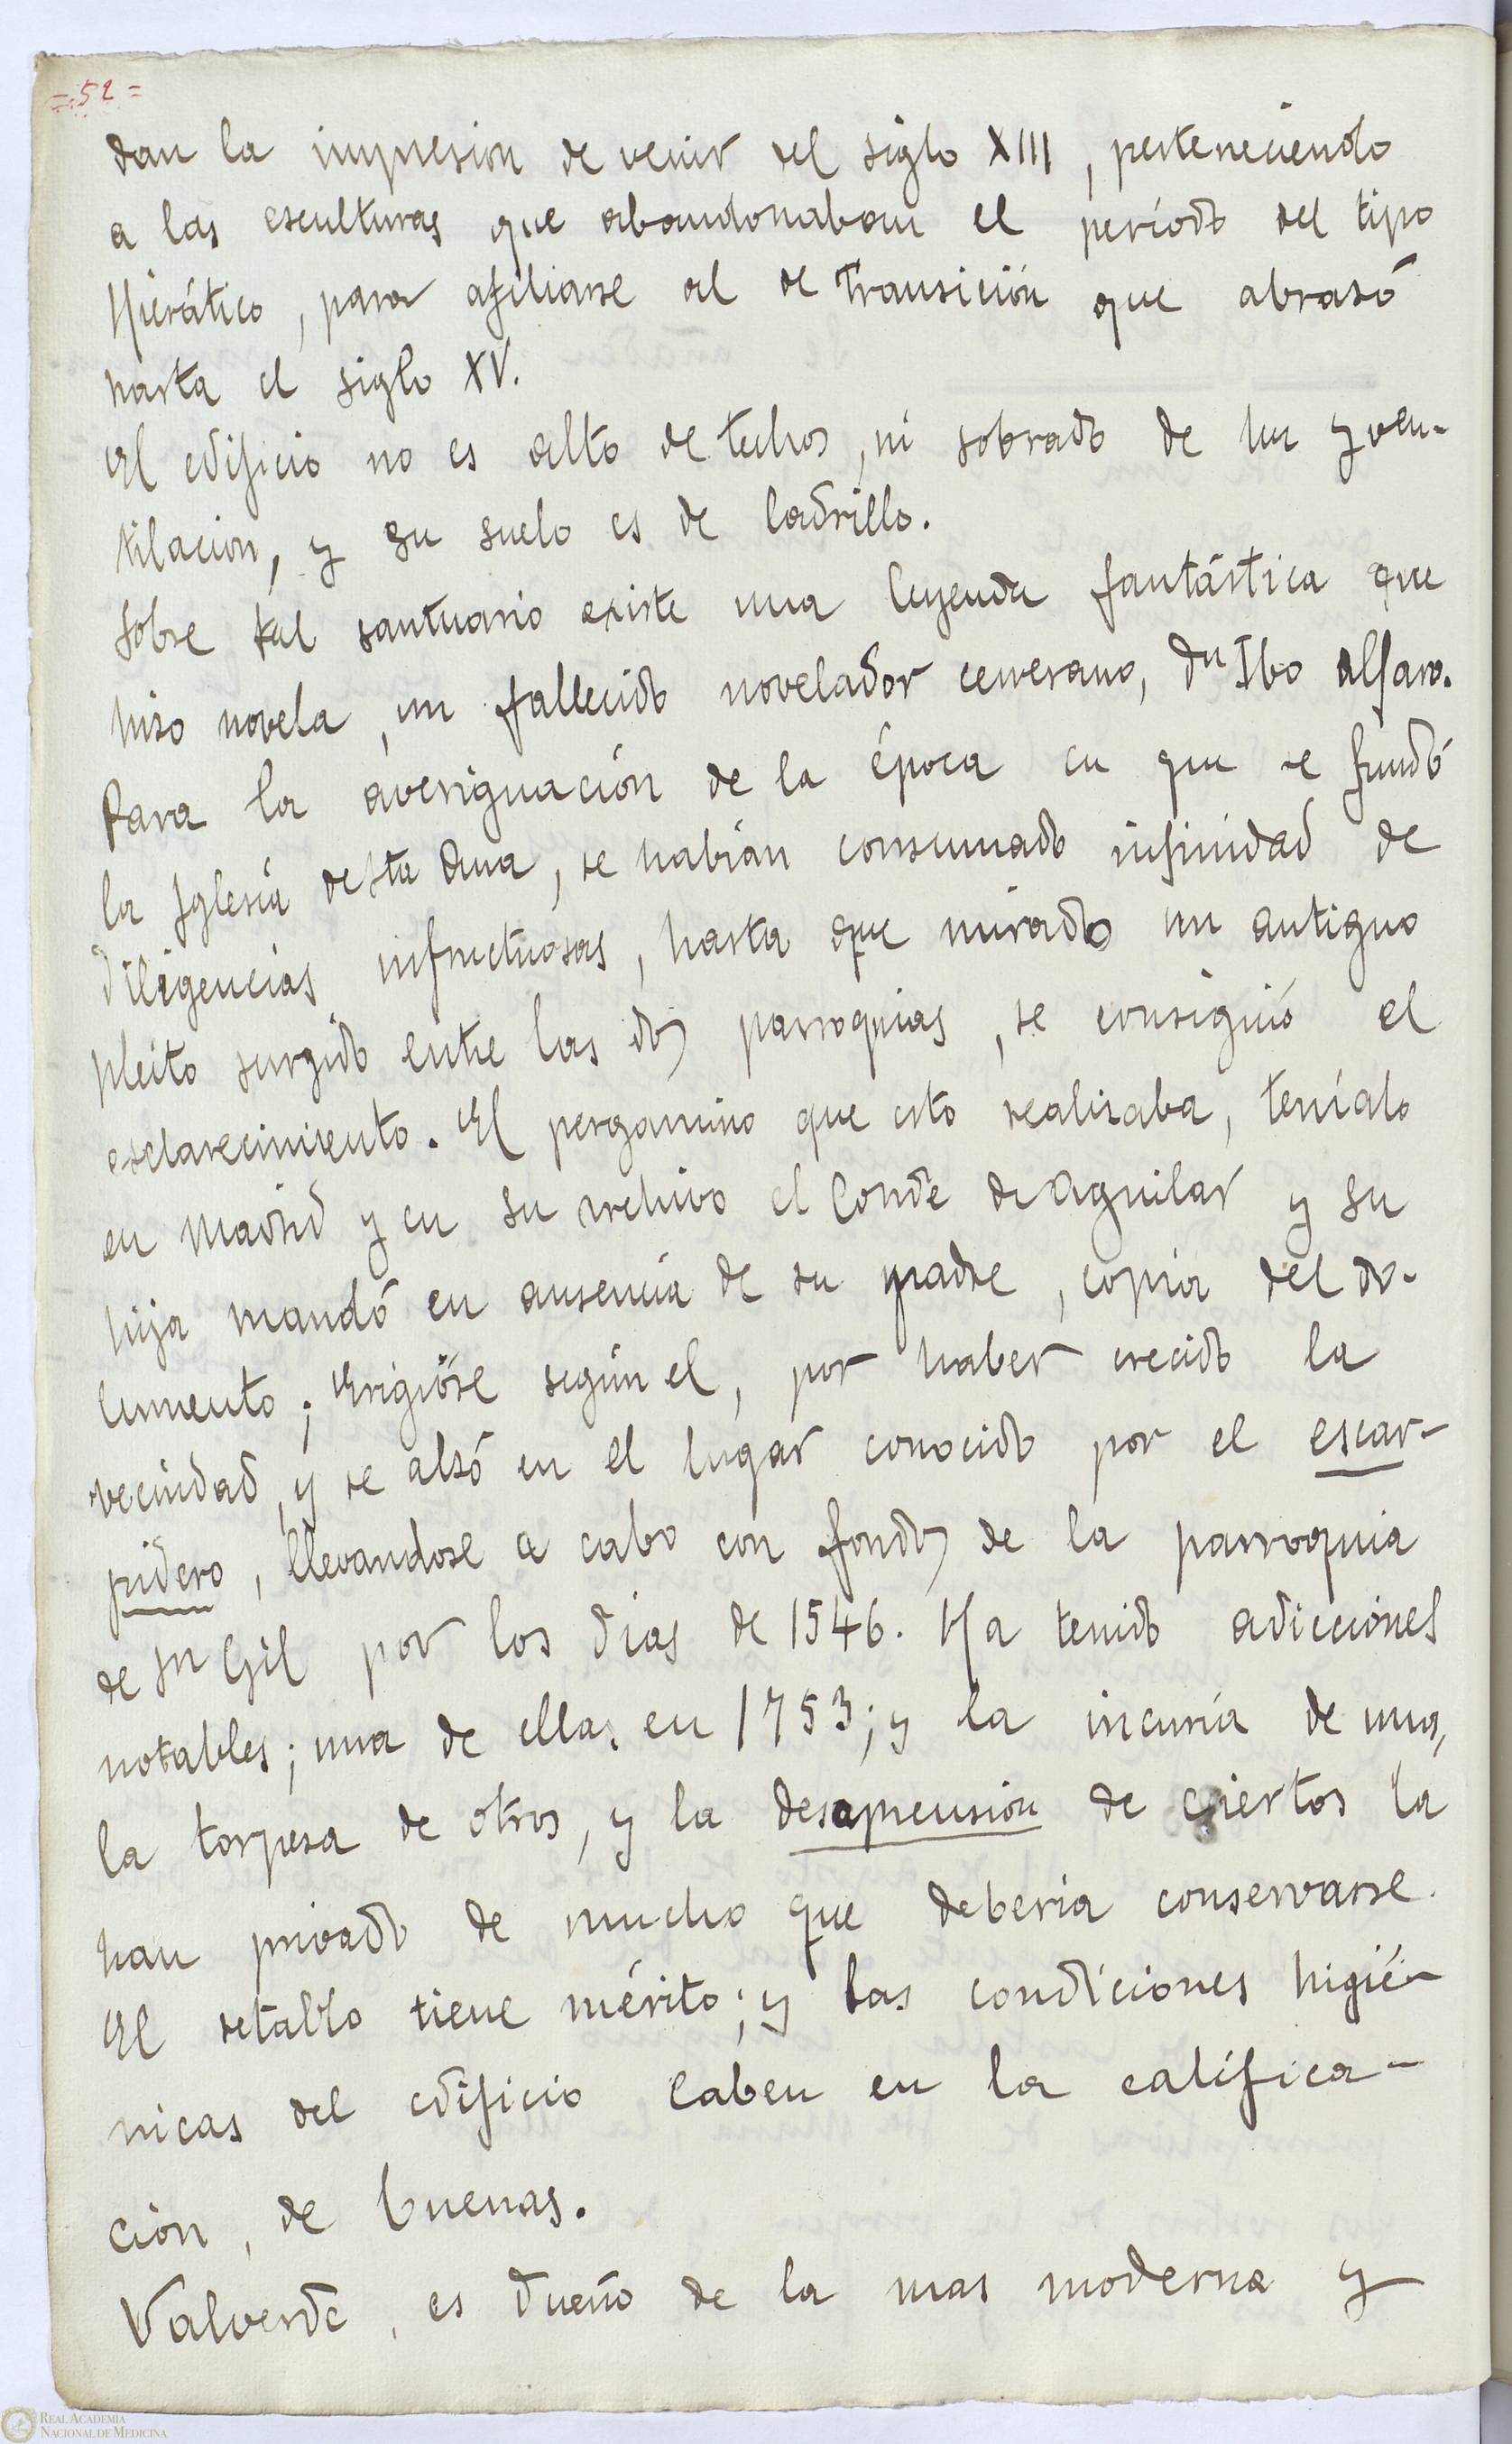 = 52 =
dan la impresion de venir del siglo XIII, perteneciendo
a las esculturas que abandonaban el período del tipo
Hierático, para afiliarse al de Transición que abrasó
hasta el siglo XV.
El edificio no es alto de techos, ni sobrado de luz y ven-
tilacion, y su suelo es de ladrillo.
Sobre tal santuario existe una leyenda fantástica que
hizo novela, un fallecido novelador cerverano, Dn Ibo Alfaro.
Para la averiguación de la época en que se fundó
la Iglesia de Sta Ana, se habían consumado infinidad de
diligencias infructuosas, hasta que mirado un antiguo
pleito surgido entre las dos parroquias, se consiguió el
esclarecimiento. El pergamino que esto realizaba, teníalo
en Madrid y en su archivo el Conde de Aguilar y su
hija mandó en ausencia de su padre, copia del do-
cumento; Erigióse según el, por haber crecido la
vecindad, y se alzó en el lugar conocido por el escar-
pidero, llevandose a cabo con fondos de la parroquia
de Sn Gil por los dias de 1546. Ha tenido adicciones
notables; una de ellas en 1753; y la incuria de unos,
la torpesa de otros, y la desaprensión de ciertos la
han privado de mucho que deberia conservarse.
El retablo tiene mérito; y las condiciones higié-
nicas del edificio caben en la califica-
ción, de buenas.
Valverde, es dueño de la mas moderna y
REAL ACADEMIA
NACIONAL DE MEDICINA